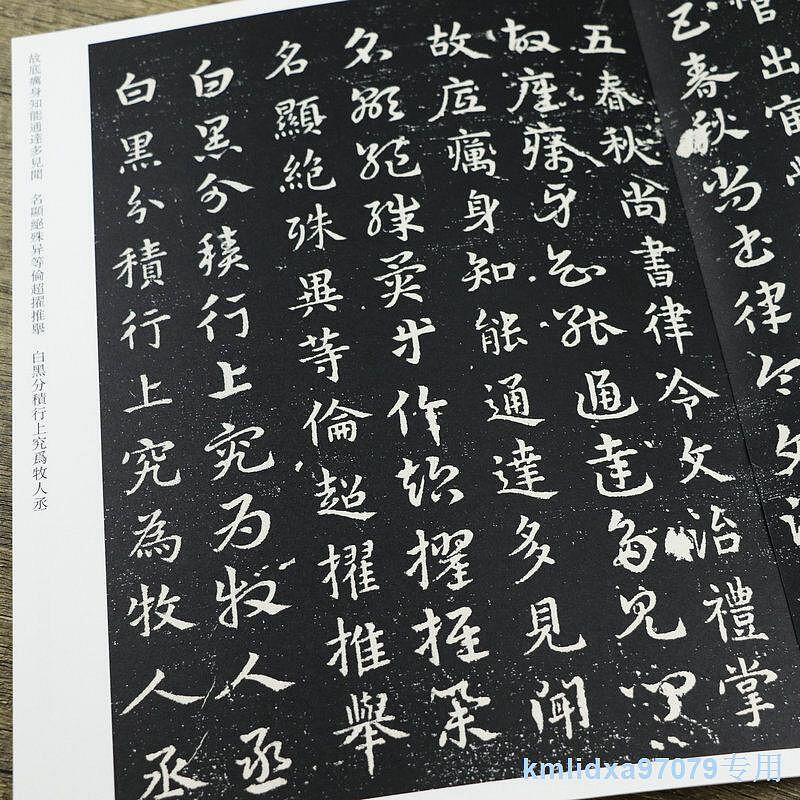 五春秋尚書律令文治
五春秋尚書律令文治禮掌
故底癘身知能通達多見聞
故底癘身知能通達多見聞
名顯絕殊異等倫超擢推舉
名顯絕殊異等倫超擢推舉
白黑分積行上究為牧人丞
白黑分積行上究為牧人丞
故底癘身知能通達多見聞 名顯絕殊异等倫超擢推舉 白黑分積行上究爲牧人丞
kmlidxa97079专用